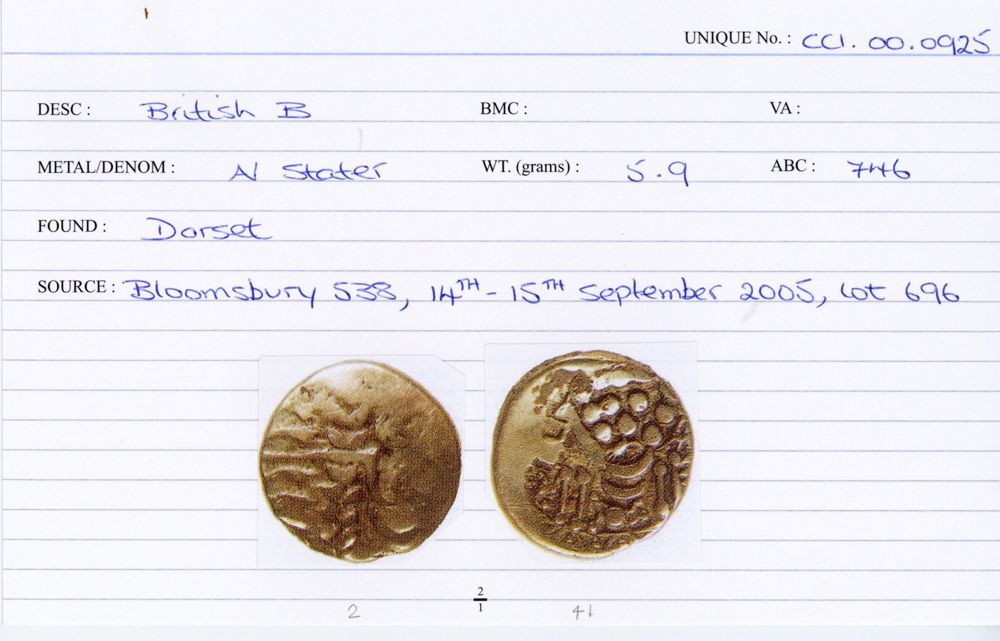 UNIQUE No. : CCI. 00.0925
DESC : British B BMC : VA :
METAL/DENOM : N Stater WT. (grams) : 5.9 ABC : 746
FOUND : Dorset
SOURCE : Bloomsbury 538, 14TH - 15TH September 2005, Lot 696
2/1
2 41